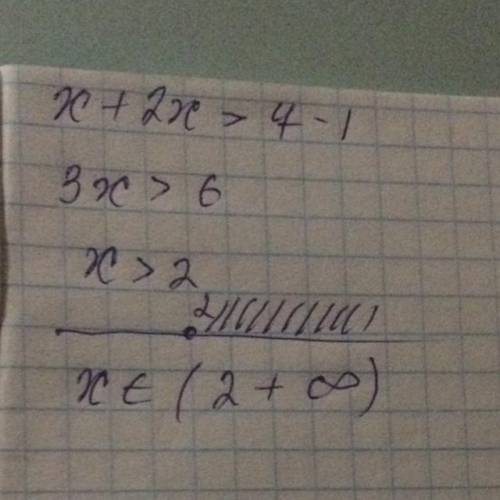 x + 2x > 4 - 1
3x > 6
x > 2
2
x ∈ (2 + ∞)